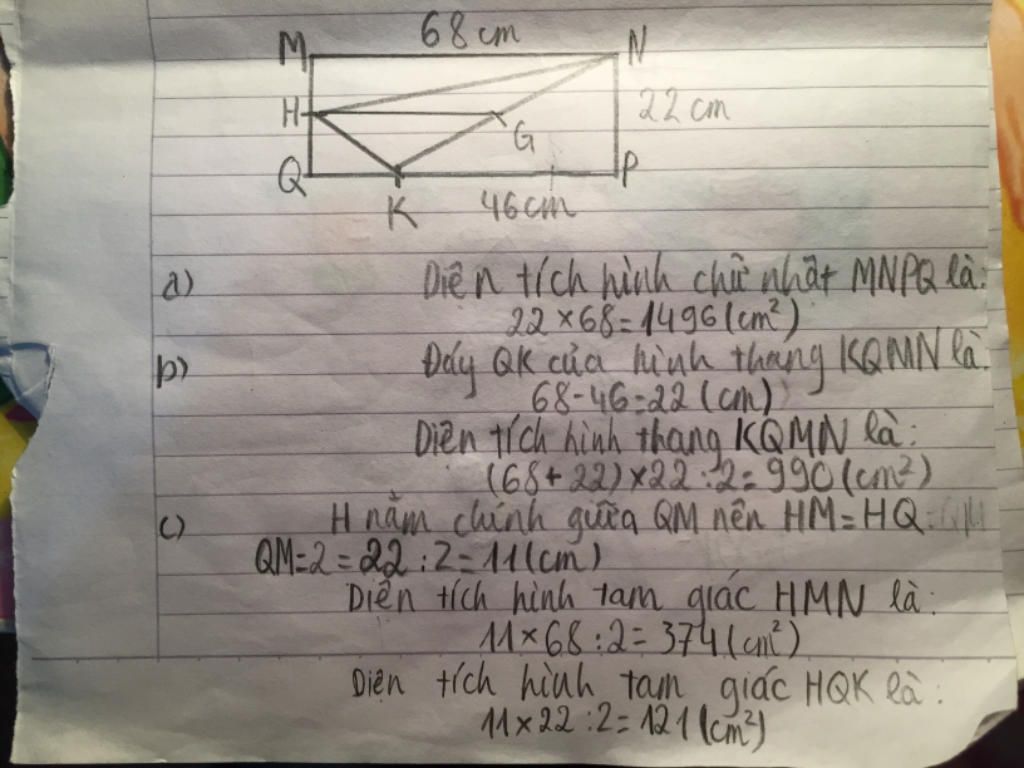 68 cm
M N
H 22 cm
G
Q P
K 46 cm
a) Diện tích hình chữ nhật MNPQ là:
22 × 68 = 1496 (cm²)
b) Đáy QK của hình thang KQMN là:
68 - 46 = 22 (cm)
Diện tích hình thang KQMN là:
(68 + 22) × 22 : 2 = 990 (cm²)
c) H nằm chính giữa QM nên HM = HQ =
QM = 2 = 22 : 2 = 11 (cm)
Diện tích hình tam giác HMN là:
11 × 68 : 2 = 374 (cm²)
Diện tích hình tam giác HQK là:
11 × 22 : 2 = 121 (cm²)